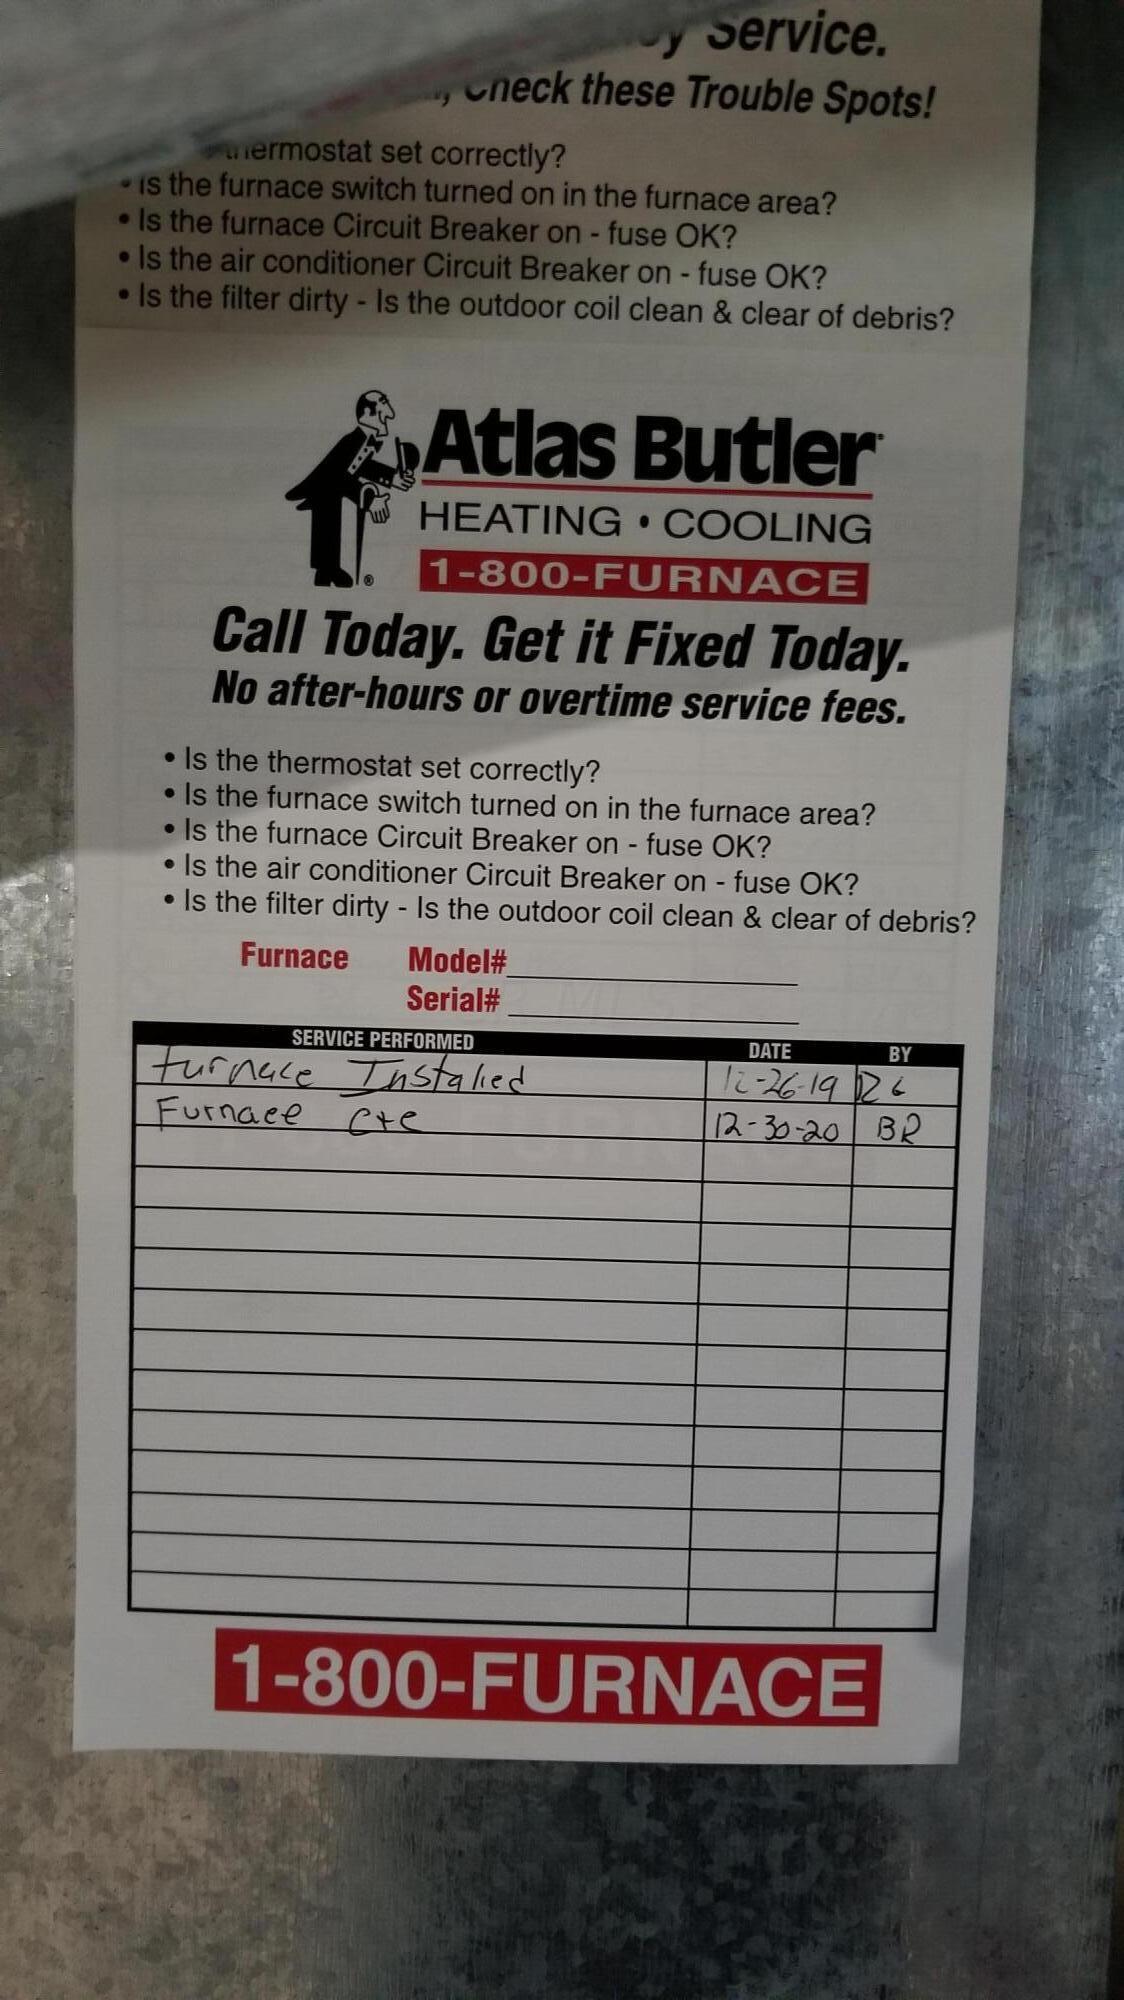 Service.
Check these Trouble Spots!
thermostat set correctly?
• Is the furnace switch turned on in the furnace area?
• Is the furnace Circuit Breaker on - fuse OK?
• Is the air conditioner Circuit Breaker on - fuse OK?
• Is the filter dirty - Is the outdoor coil clean & clear of debris?
Atlas Butler
HEATING • COOLING
1-800-FURNACE
®
Call Today. Get it Fixed Today.
No after-hours or overtime service fees.
• Is the thermostat set correctly?
• Is the furnace switch turned on in the furnace area?
• Is the furnace Circuit Breaker on - fuse OK?
• Is the air conditioner Circuit Breaker on - fuse OK?
• Is the filter dirty - Is the outdoor coil clean & clear of debris?
Furnace Model#
Serial#
SERVICE PERFORMED DATE BY
Furnace Installed 12-26-19
Furnace C+C 12-30-20 BR
1-800-FURNACE